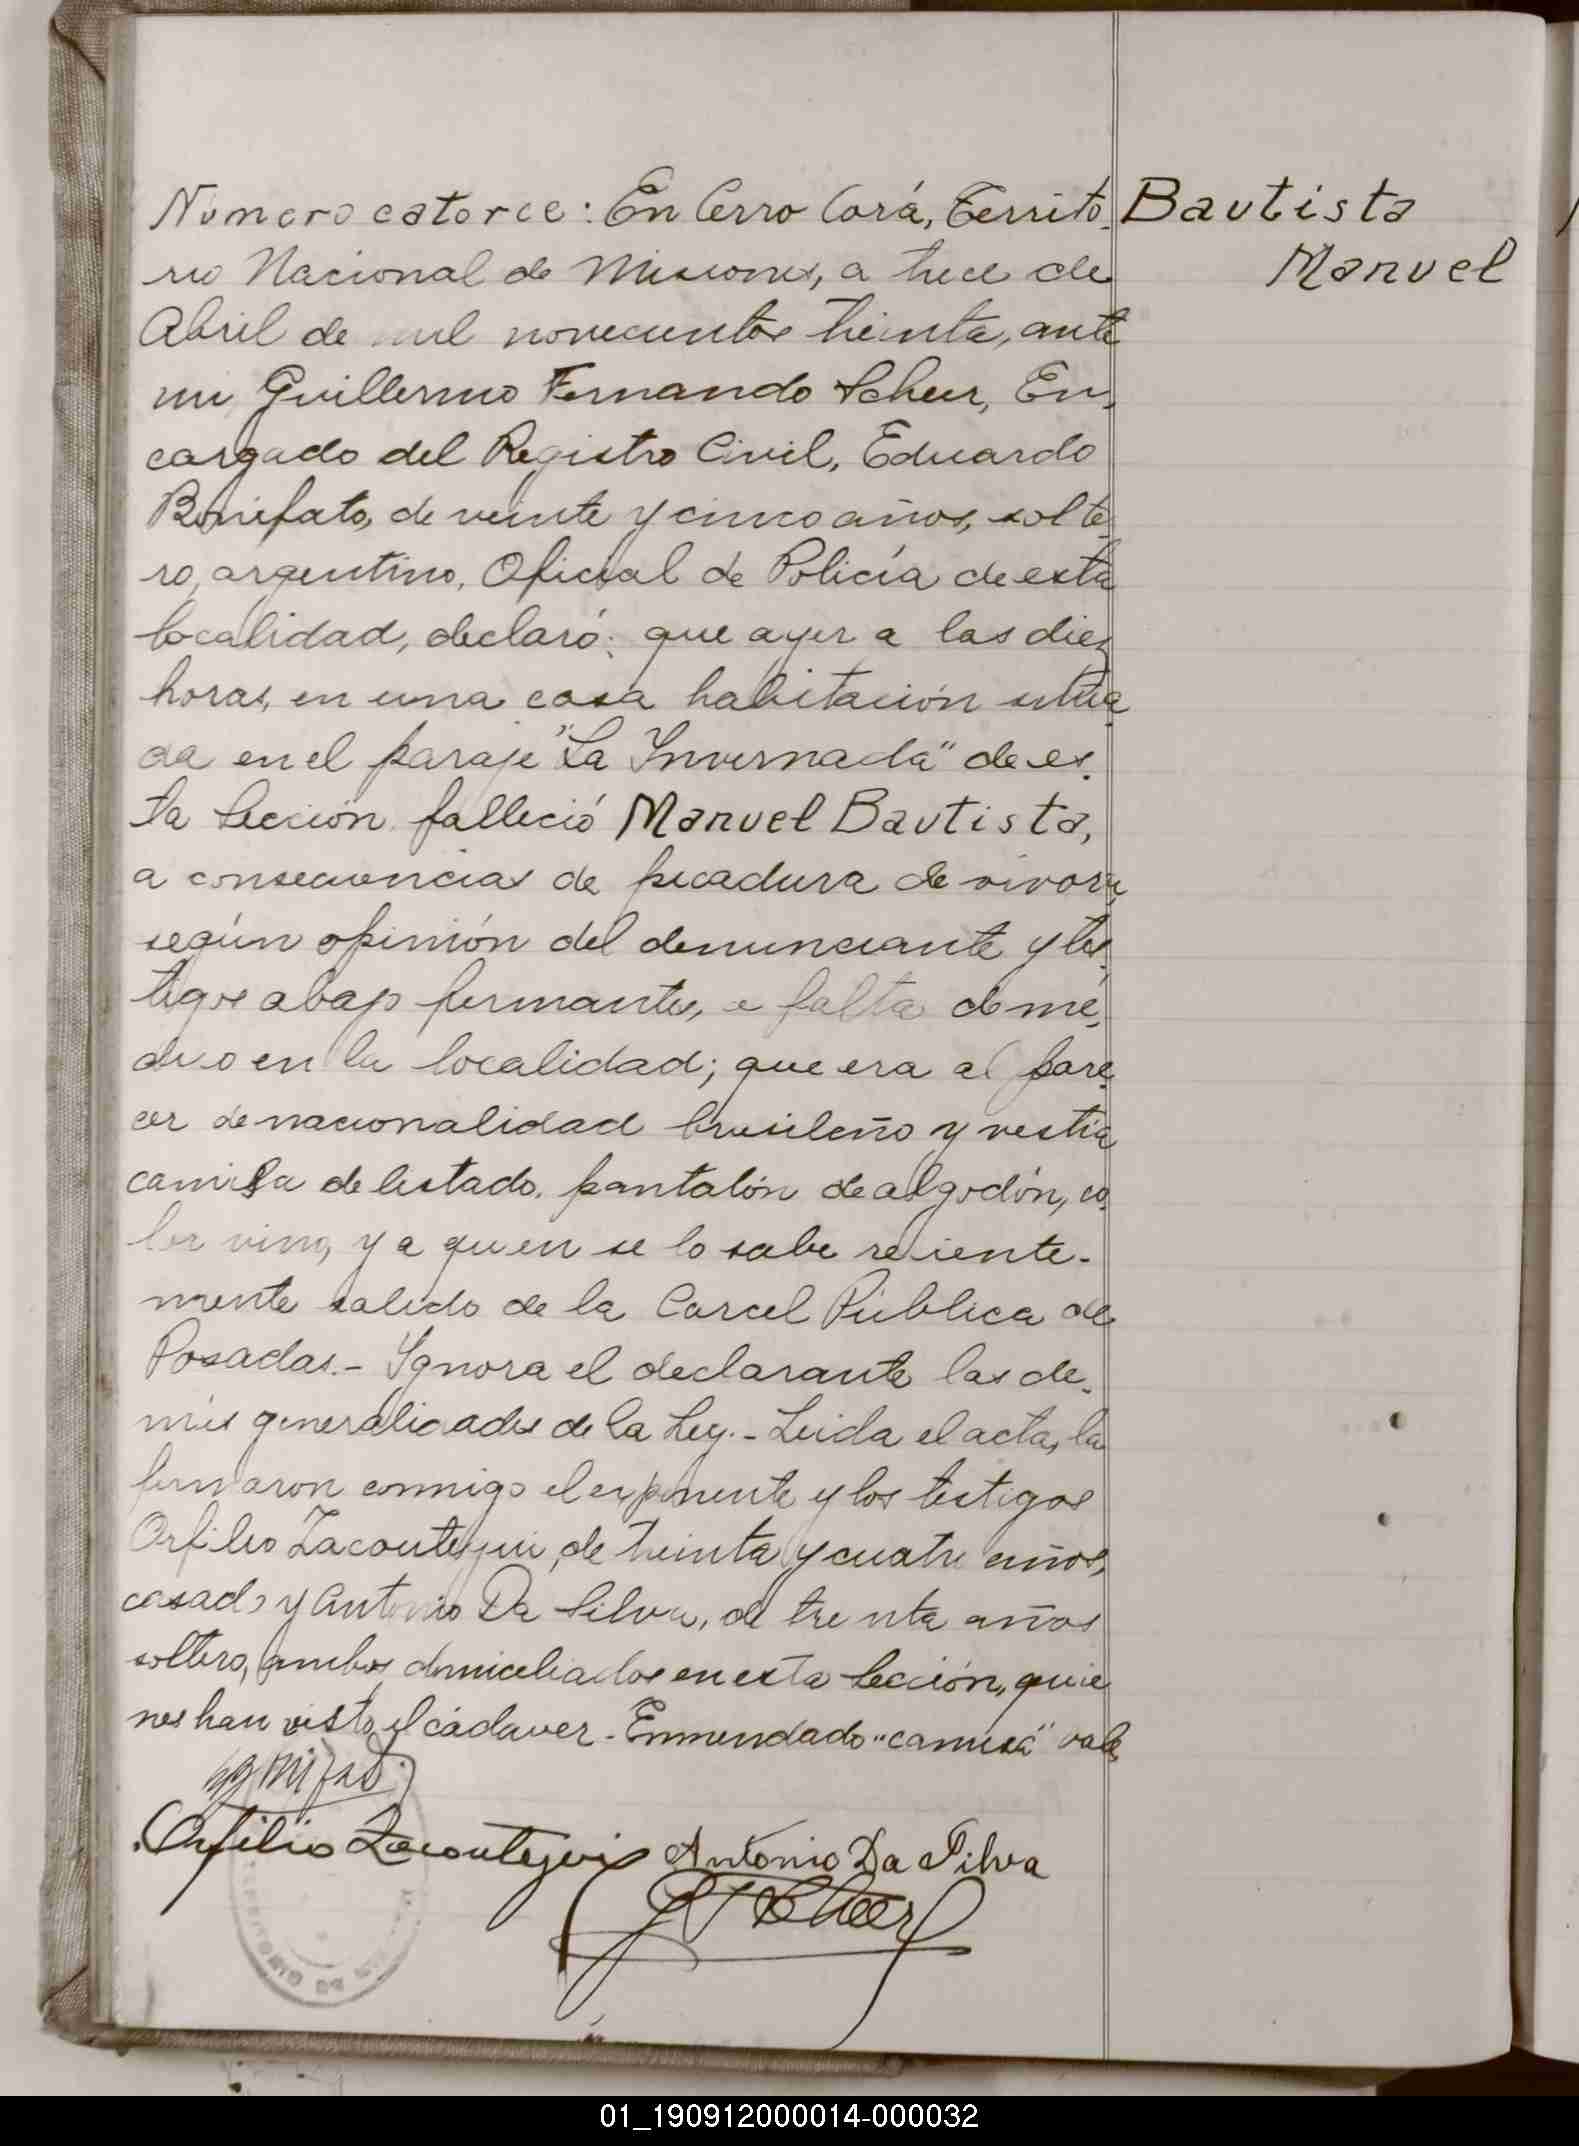 Número catorce: En Cerro Corá, Territo-
rio Nacional de Misiones, a trece de
Abril de mil novecientos treinta, ante
mi Guillermo Fernando Scheer, En-
cargado del Registro Civil, Eduardo
Bonifato, de veinte y cinco años, solte-
ro, argentino, Oficial de Policía de esta
localidad, declaró: que ayer a las diez
horas, en una casa habitación situa-
da en el paraje "La Invernada" de es-
ta Sección falleció Manuel Bautista,
a consecuencias de picadura de vivora,
según opinión del denunciante y tes-
tigos abajo firmantes, a falta de mé-
dico en la localidad; que era al pare-
cer de nacionalidad brasileño y vestía
camisa de listado, pantalón de algodón, co-
lor vino, y a quien se lo sabe reciente-
mente salido de la Carcel Pública de
Posadas.- Ignora el declarante las de-
más generalidades de la Ley.- Leida el acta, la
firmaron conmigo el exponente y los testigos
Orfilio Zacoutegui, de treinta y cuatro años,
casado y Antonio Da Silva, de treinta años
soltero, ambos domiciliados en esta Sección, quie-
nes han visto el cádaver.- Enmendado "camisa" vale
Orfilio Zacoutegui Antonio Da Silva
G F Scheer
Bautista
Manuel
01_190912000014-000032